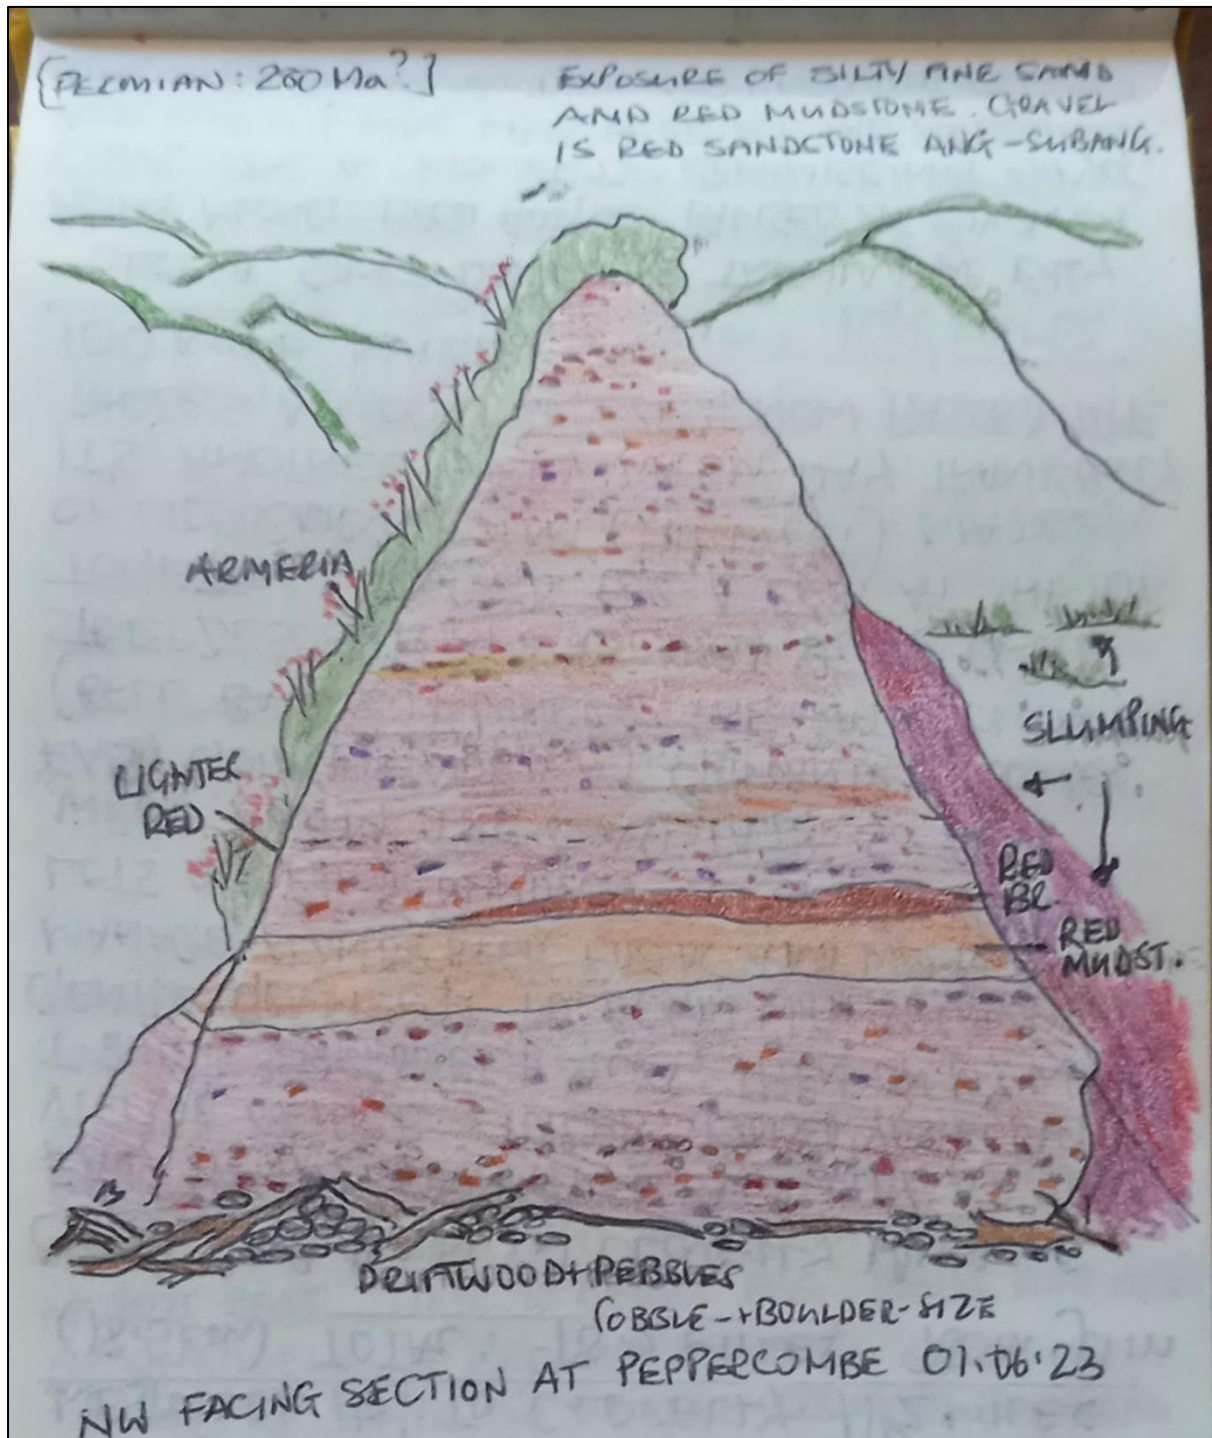 [PERMIAN: 260 Ma?]
EXPOSURE OF SILTY FINE SAND
AND RED MUDSTONE. GRAVEL
IS RED SANDSTONE ANG-SUBANG.
ARMERIA
SLUMPING
LIGHTER
RED
RED
BR.
RED
MUDST.
DRIFTWOOD+PEBBLES
COBBLE-+BOULDER-SIZE
NW FACING SECTION AT PEPPERCOMBE 01.06.23